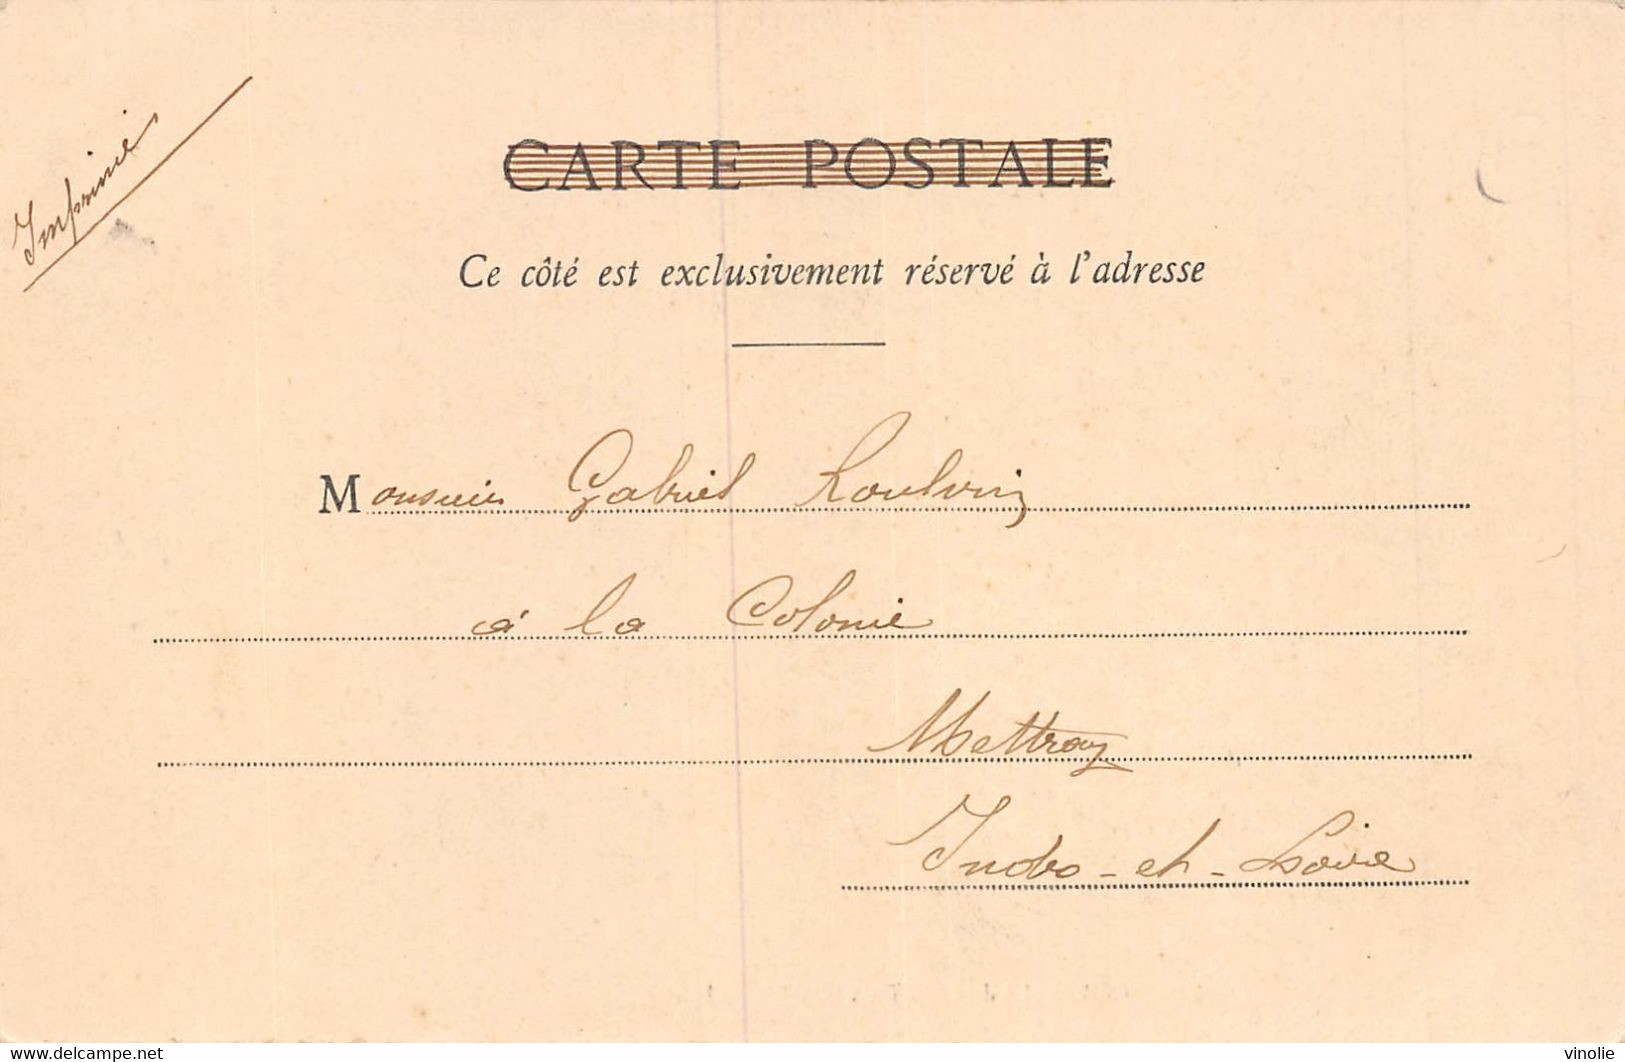 Imprimé
CARTE POSTALE
Ce côté est exclusivement réservé à l'adresse
Monsieur Gabriel
à la Colonie
Mettray
Indre-et-Loire
www.delcampe.net
vinolie